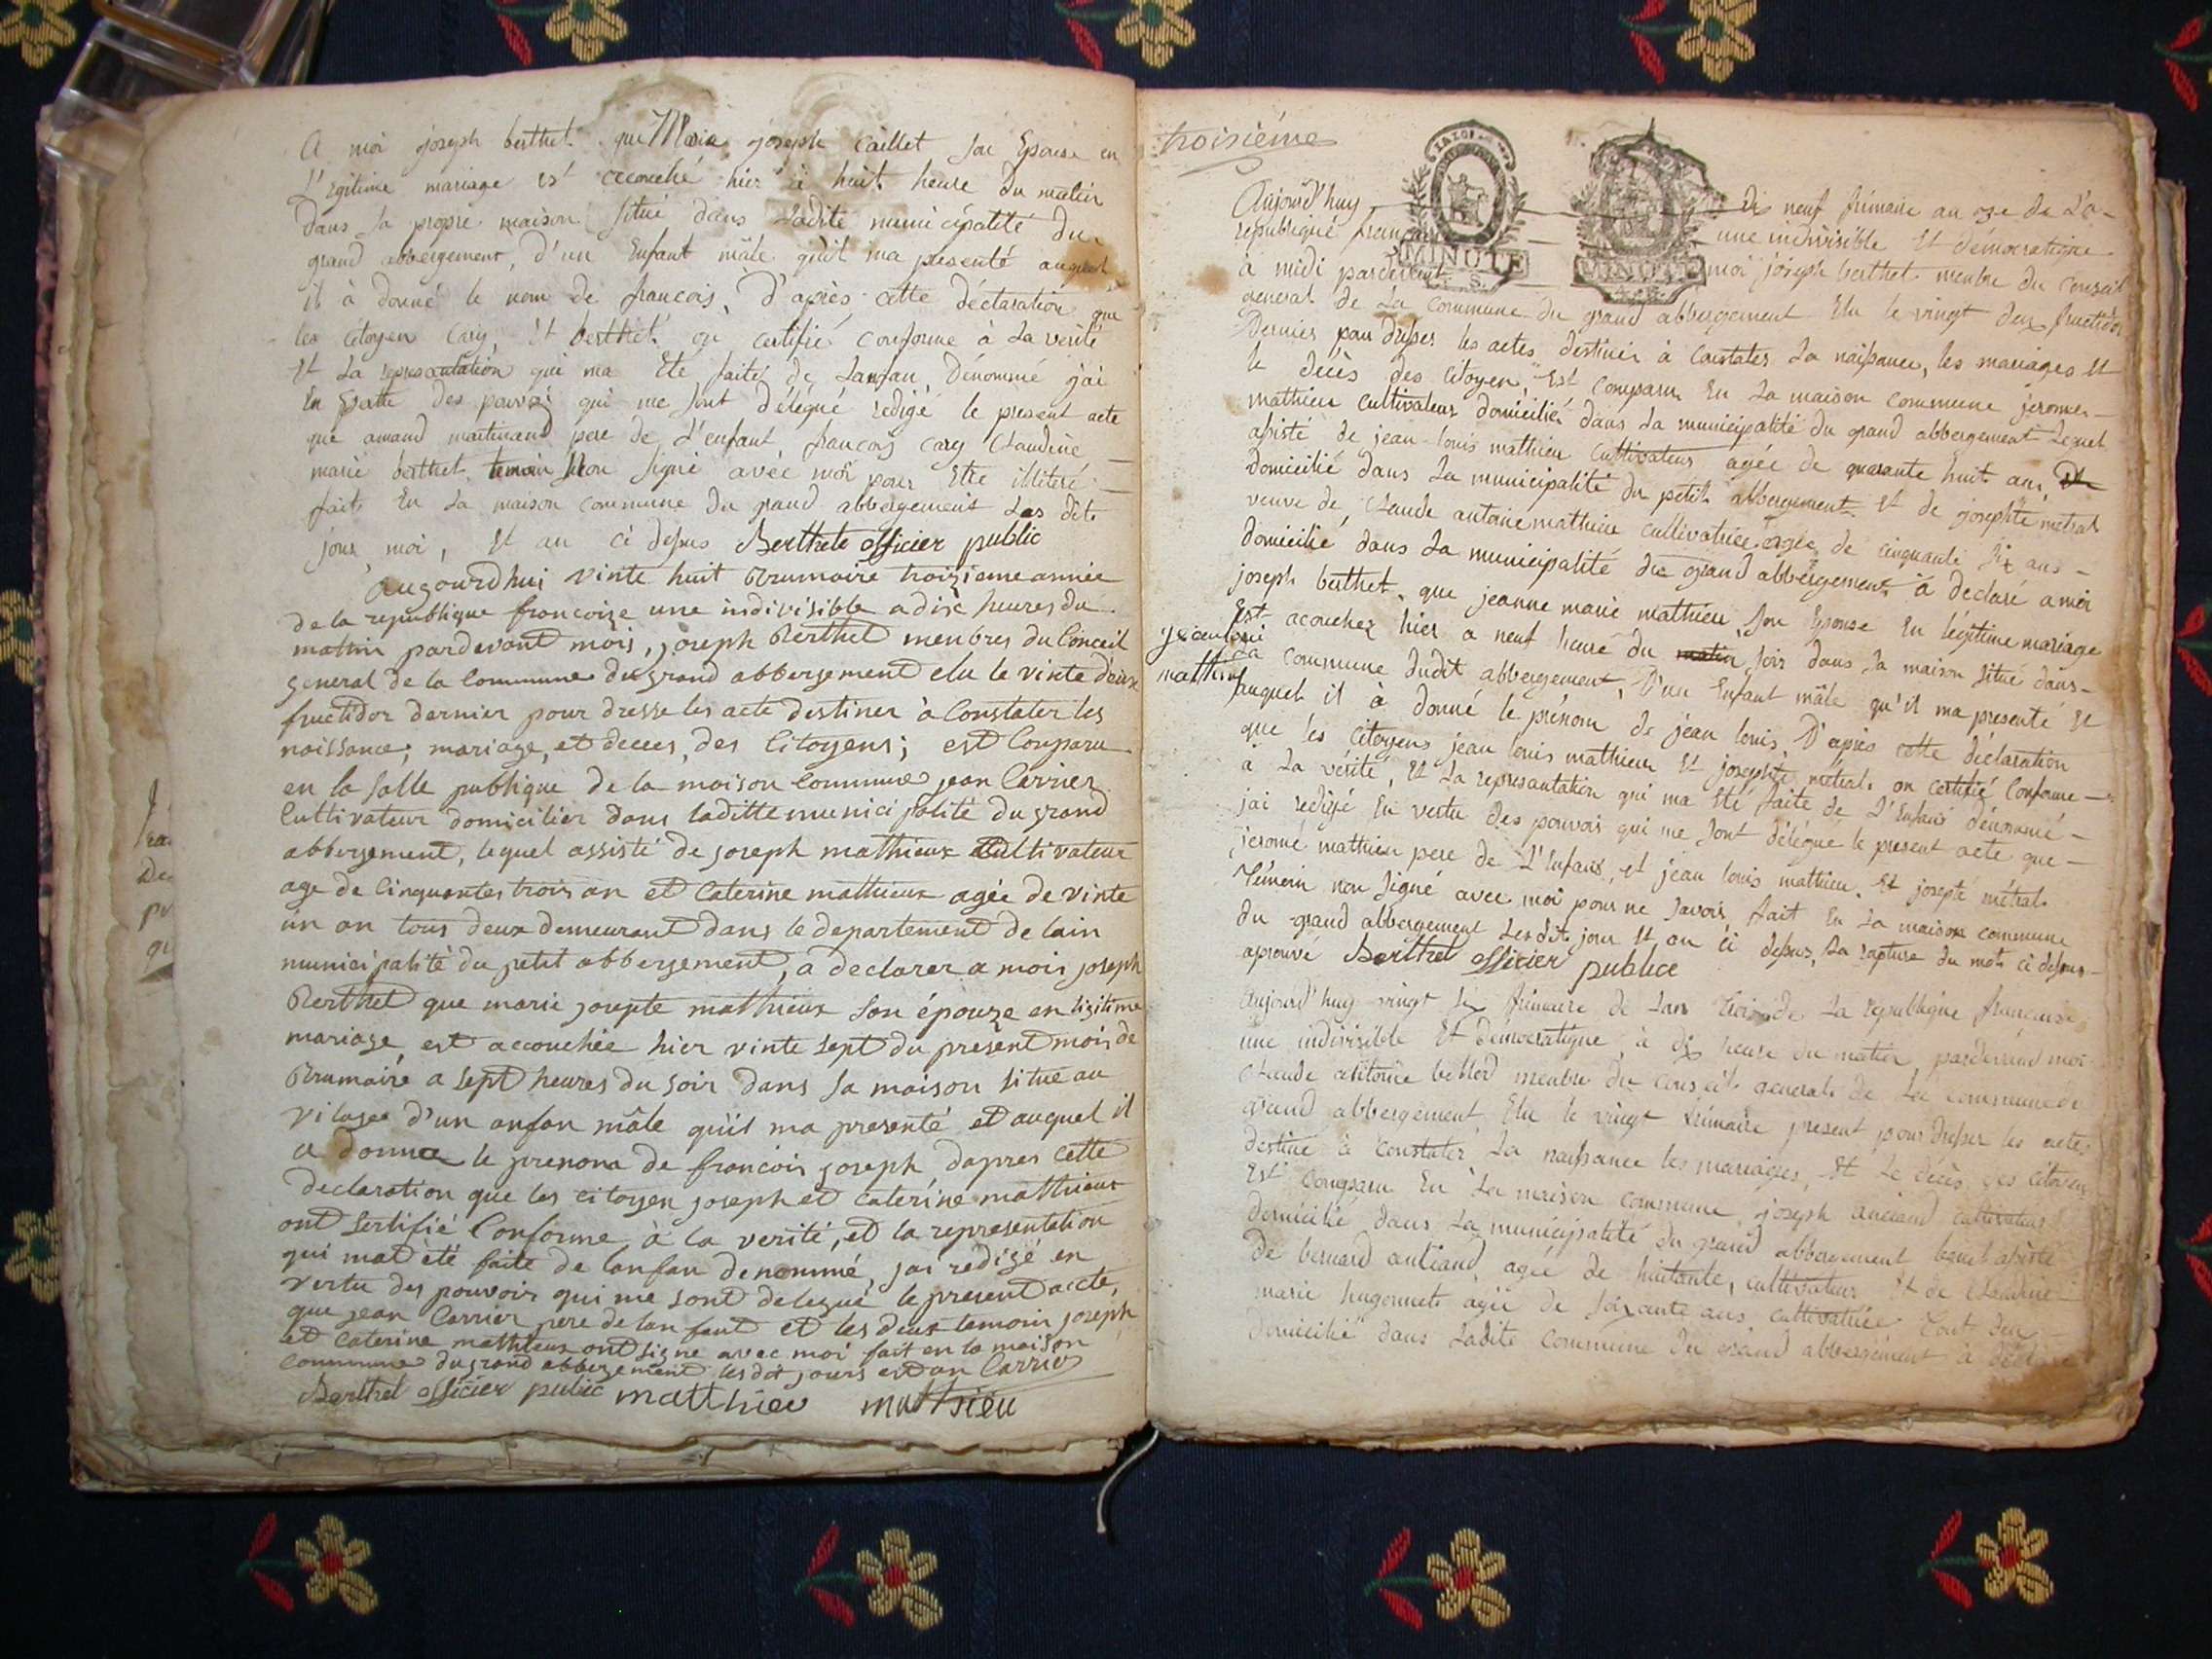 A moi joseph berthet que Marie joseph Caillet son Epouse en
L'egitime mariage est accouché hier à huit heure du matin
dans sa propre maison situé dans Ladite municipalité du
grand abbergement, d'un Enfant mâle qu'il ma presenté auquel
il à donné le nom de francois, D'après cette déclaration que
les citoyen Cary, Et berthet on certifié conforme à La verité
Et La representation qui ma Eté faite de Lanfan Dénommé j'ai
En des pouvoi qui me sont délégué redigé le present acte
que amand martinand pere de L'enfant francois Cary Claudine
marie berthet temoin Non signé avec moi pour Etre illiteré
fait En La maison commune du grand abbergement Les dit
jour moi, Et an ci dessus Berthete officier public
Augourdhui vinte huit Brumaire troizieme année
de la republique francoize une indivisible a dix heures du
mattin pardevant mois, joseph Berthet menbres du Conceil
general de la Commune du grand abbergement elu le vinte deux
fructidor dernier pour dresse les acte destiner à Constater les
naissance, mariage, et deces, des Citoyens; est Conparu
en la salle publique de la maison Commune jean Carrier
Cultivateur domicilier dans laditte municipalité du grand
abbergement, lequel assisté de joseph mathieux Cultivateur
age de Cinquantes trois an et Caterine mathieux agée de vinte
un an tous deux demeurant dans le departement de lain
municipalité du petit abbergement, a declarer a mois joseph
Berthet que marie josepte mathieux son épouze en ligitime
mariage est accouchée hier vinte sept du present mois de
Brumaire a sept heures du soir dans sa maison situe au
vilagee d'un anfan mâle qu'il ma presenté et auquel il
a donner le prenom de francois joseph dapres cette
declaration que les citoyen joseph et Caterine mathieux
ont Sertifié Conforme à la verité, et la representation
qui mat été faite de lanfan denommé, jai rédigé en
vertu des pouvoir qui me sont delegué le present acte,
que jean Carrier pere de lan fant et les deux temoin joseph
et Caterine mathieux ont signe avec moi fait en la maison
Commune du grand abbergement les dit jours et an Carrier
Berthet officier pulic matthieu mathieu
troisième
Aujourd'huy Dix neuf frimaire an 3e de La
republique français une indivisible Et démocratique
à midi pardevant moi joseph berthet menbre du conseil
general de La Commune du grand abbergement Elu le vingt deux fructidor
Dernier pour dresser les actes destiner à Constater La naissance, les mariages Et
le décès des citoyen, Est comparu En La maison commune jerome
mathieu cultivateur domicilié dans La municipalité du grand abbergement Lequel
assisté de jean louis mathieu Cultivateur agée de quarante huit ans,
domicilié dans La municipalité du petit abbergement Et de josephte métral
veuve de Claude antoine mathieu cultivatrice agée de cinquante six ans
domicilié dans La municipalité du grand abbergement à déclaré à moi
joseph berthet, que jeanne marie mathieu son Epouse En légitime mariage
Est acouchez hier a neuf heure du matin soir dans sa maison situé dans
La commune dudit abbergement, D'un Enfant mâle qu'il ma presenté Et
mathieu
auquel il à donné le prénom de jean louis, D'après cette déclaration
que les citoyens jean louis mathieu Et josephte métral on certifié Conforme
à La vérité, Et La représantation qui ma Eté faite de L'Enfant dénommé
jai redigé En vertu des pouvoir qui me sont délégué le present acte que
jerome mathieu pere de L'Enfant, et jean louis mathieu Et josepte métral
Témoin non signé avec moi pour ne savoir fait En La maison commune
du grand abbergement Les dit jour Et an ci dessus, La rapture du mot ci dessus
aprouvé Berthet officier publice
Aujourd'huy vingt six frimaire de Lan trois de La republique francaise
une indivisible Et Démocratique à dix heure du matin pardevant moi
Claude menbre du conseil general de La commune du
grand abbergement Elu le vingt frimaire present pour dresser les actes
destiné à Constater La naissance les mariages, Et le décès des citoyens
Est Comparu En La maison commune joseph cultivateur
domicilié dans La municipalité du grand abbergement lequel assisté
de bernard agée de huitante, cultivateur Et de Claudine
marie hugonnet agée de soixante ans cultivatrice tout deux
domicilié dans Ladite commune du grand abbergement à déclaré